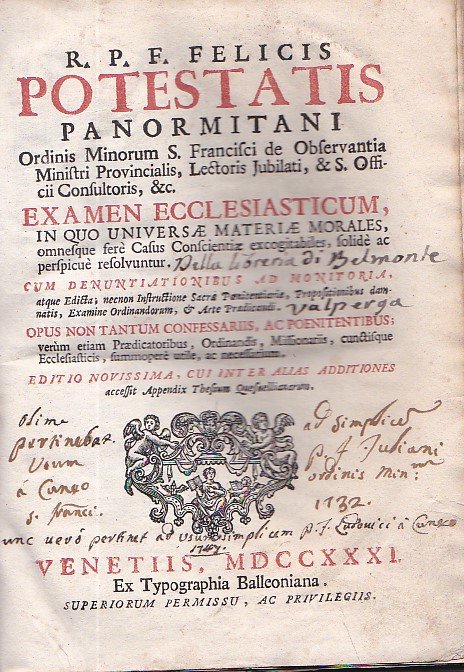 R. P. F. FELICIS
POTESTATIS
PANORMITANI
Ordinis Minorum S. Francisci de Observantia
Ministri Provincialis, Lectoris Jubilati, & S. Offi-
cii Consultoris, &c.
EXAMEN ECCLESIASTICUM,
IN QUO UNIVERSÆ MATERIÆ MORALES,
omnesque ferè Casus Conscientiæ excogitabiles, solidè ac
perspicuè resolvuntur. Della libreria di Belmonte
CUM DENUNTIATIONIBUS AD MONITORIA,
atque Edicta; necnon Instructione Sacræ Pœnitentiariæ, Propositionibus dam-
natis, Examine Ordinandorum, & Arte Prædicandi. Valperga
OPUS NON TANTUM CONFESSARIIS, AC POENITENTIBUS;
verùm etiam Prædicatoribus, Ordinandis, Missionariis, cunctisque
Ecclesiasticis, summoperè utile, ac necessarium.
EDITIO NOVISSIMA, CUI INTER ALIAS ADDITIONES
accessit Appendix Thesium Quesnellianarum.
olim
pertinebat
Usum
à Cuneo
s. franci.
ad simplice
p. f. Juliani
ordinis Min:
1732.
unc verò pertinet ad usum simplicem p. f. Ludovici à Cuneo
1747.
VENETIIS, MDCCXXXI.
Ex Typographia Balleoniana.
SUPERIORUM PERMISSU, AC PRIVILEGIIS.